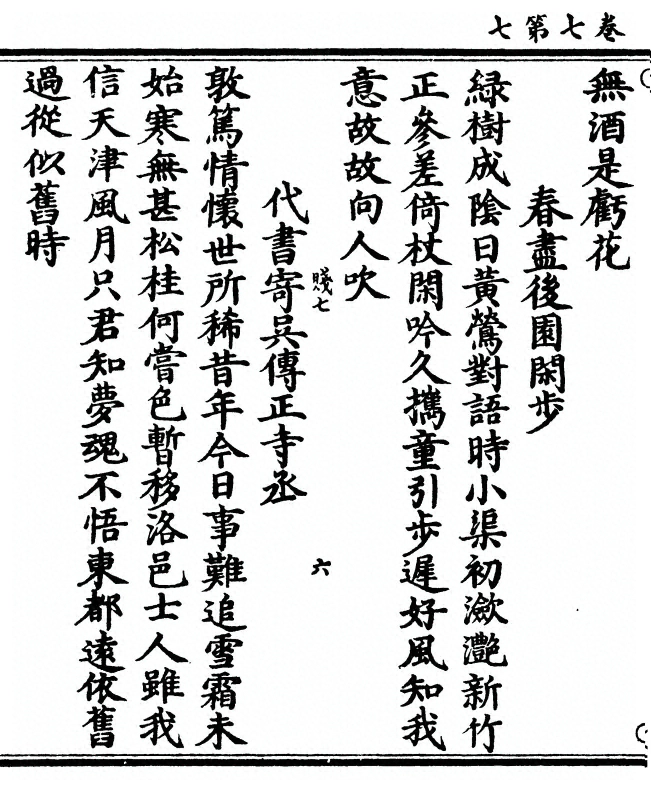 卷七第七
無酒是虧花
春盡後園閑步
綠樹成陰日黃鶯對語時小渠初瀲灩新竹
正參差倚杖閑吟久攜童引步遲好風知我
意故故向人吹
賤七
六
代書寄吳傳正寺丞
敦篤情懷世所稀昔年今日事難追雪霜未
始寒無甚松桂何嘗色暫移洛邑士人雖我
信天津風月只君知夢魂不悟東都遠依舊
過從似舊時